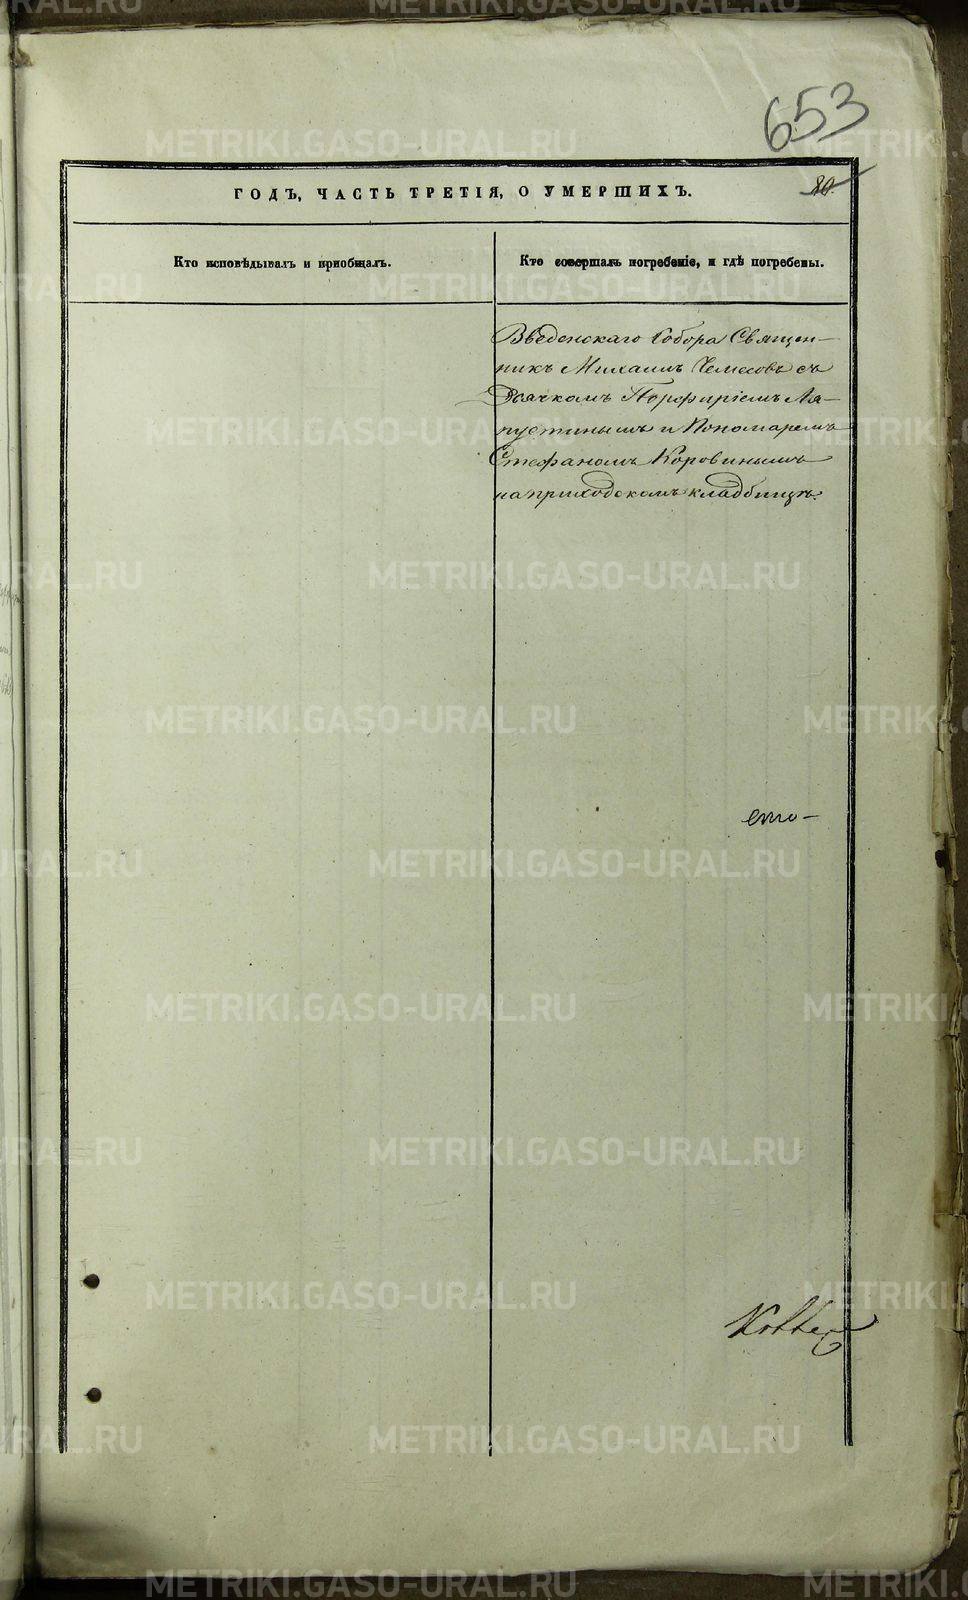 653
ГОДЪ, ЧАСТЬ ТРЕТІЯ, О УМЕРШИХЪ.
80.
Кто исповѣдывалъ и приобщалъ.
Кто совершалъ погребеніе, и гдѣ погребены.
Введенскаго Собора Священ-
никъ Михаилъ Чемесовъ съ
Дьячкомъ Порфиріемъ Ля-
пустинымъ и Пономаремъ
Стефаномъ Коровинымъ
на приходскомъ кладбищѣ.
METRIKI.GASO-URAL.RU